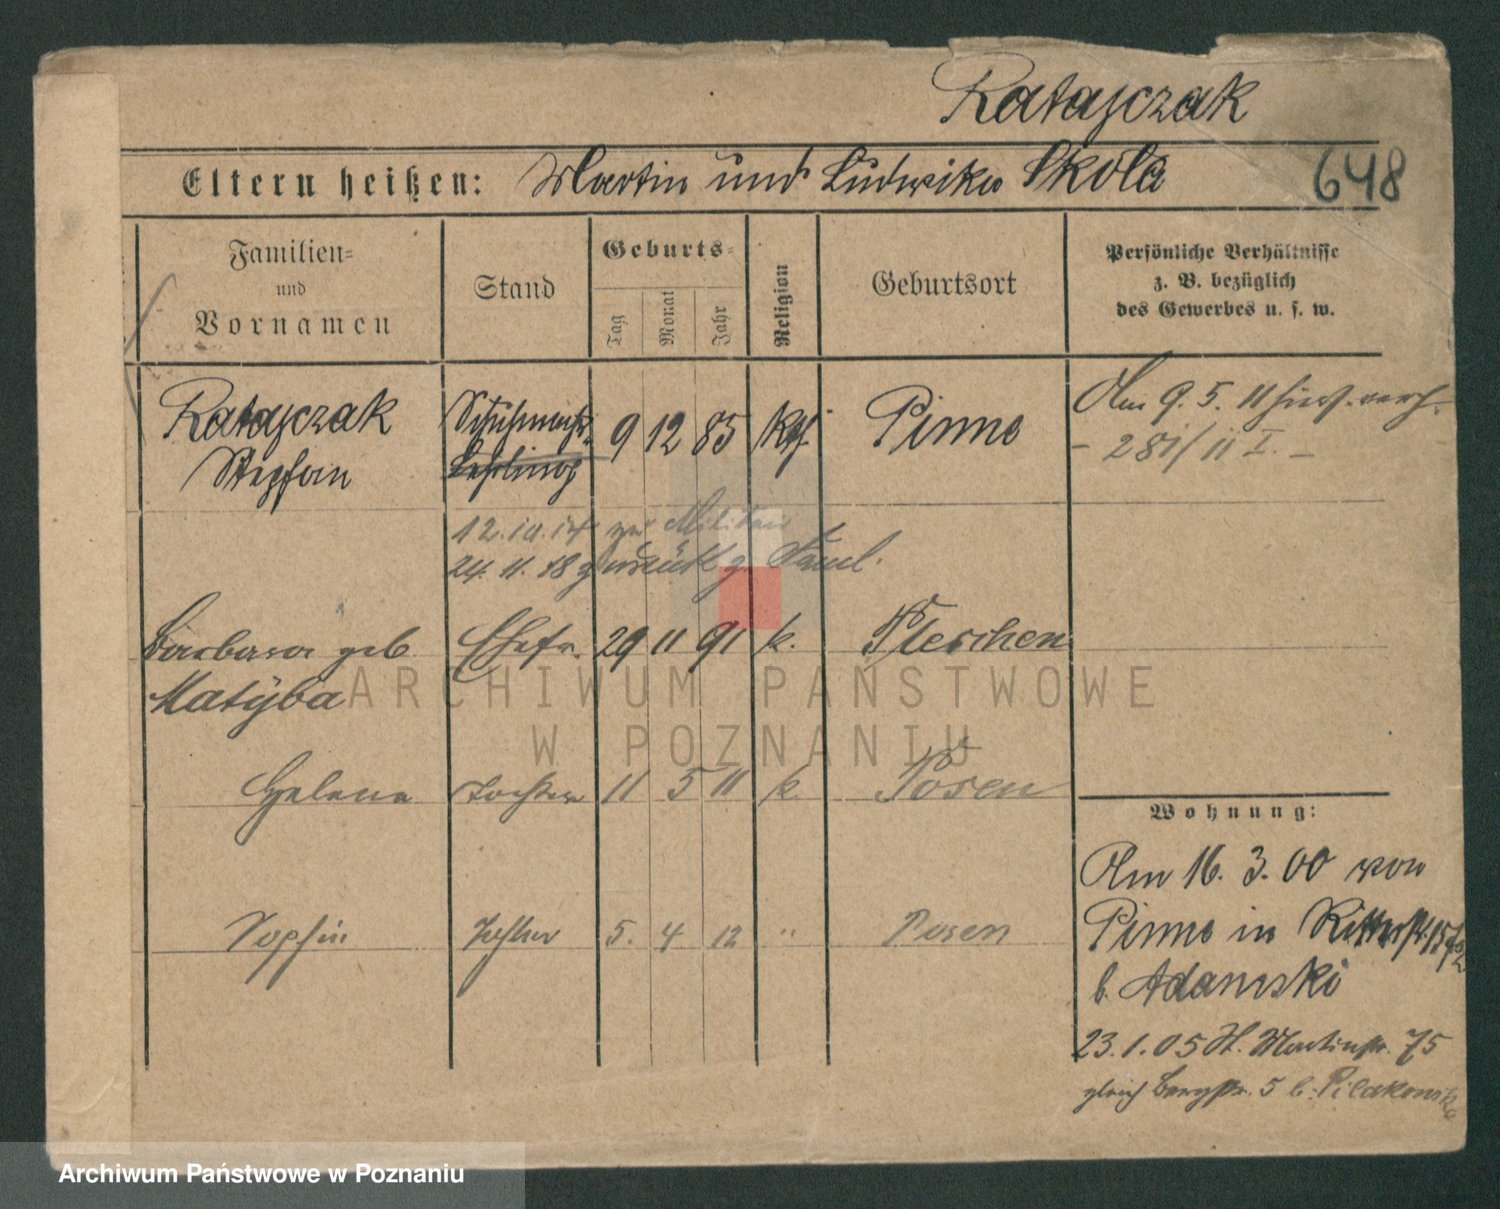 Ratajczak
Eltern heißen: Martin und Ludwika Skola
648
Familien=
und
Vornamen
Stand
Geburts=
Tag
Monat
Jahr
Religion
Geburtsort
Persönliche Verhältnisse
z. B. bezüglich
des Gewerbes u. s. w.
Ratajczak Schuhmach. 9 12 85 kth. Pinne
Stephan Lehrling
Am 9. 5. 11 hies. verh.
- 281/11 I. -
12.10.14 zum Militär
24. 11. 18 zurück z. Famil.
Barbara geb. Ehefr. 29 11 91 k. Pleschen
Matÿba
Helene Tochter 11 5 11 k. Posen
Sophie Tochter 5. 4 12 " Posen
Wohnung:
Am 16. 3. 00 von
Pinne in Ritterstr. 15
b. Adamski
23. 1. 05 St. Martinstr. 75
gleich Bergstr. 5 b. Pilakowska
ARCHIWUM PAŃSTWOWE
W POZNANIU
Archiwum Państwowe w Poznaniu